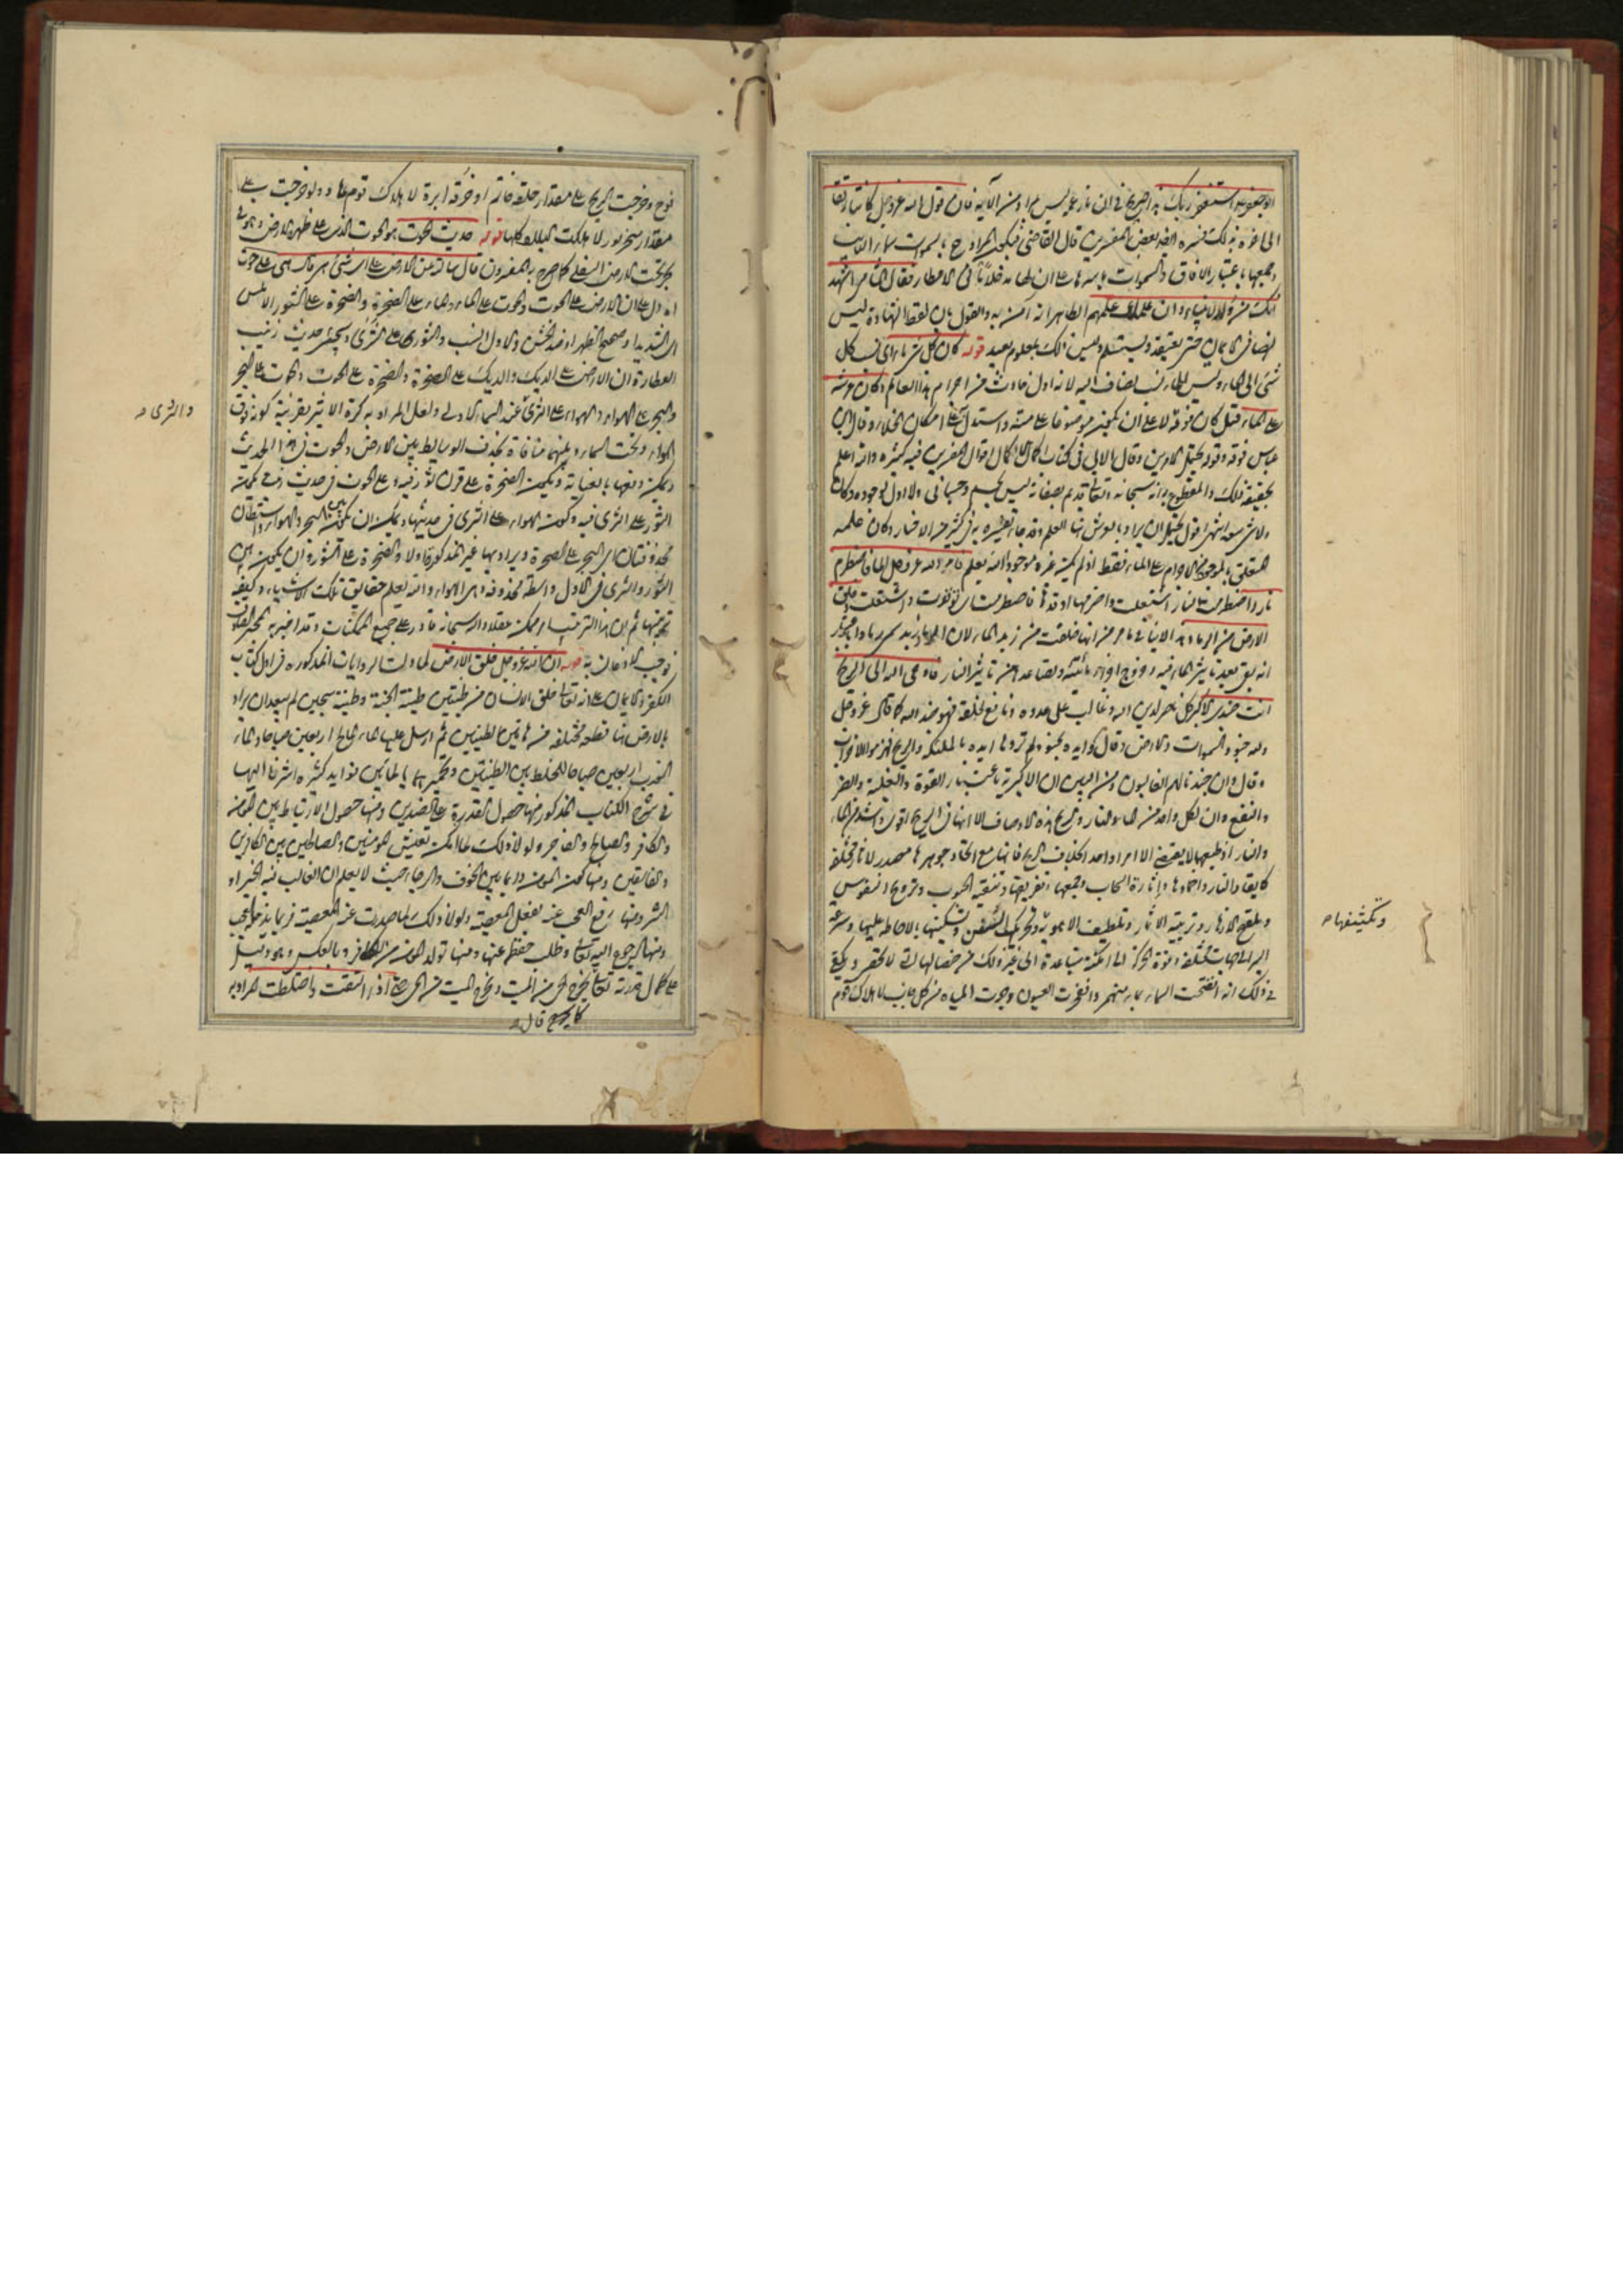 الى اخره بذلك فسره ايضا بعض المفسرين قال القاضي فيكون المراد ح بالسموات سماء الدنيا
وجمعها باعتبار الآفاق والسموات باسرها على ان لها مدخلا ما في الامطار فقال الشامي اشهد
انك من اولاد الانبياء وان علمك علمهم الظاهر انه آمن به والقول بان لفظ الشهادة ليس
شئ الى الماء وليس للماء نسب يضاف اليه لانه اول حادث من اجرام هذا العالم وكان عرشه
على الماء قيل كان فوقه لا على ان يكون موضوعا على متنه واستدل به على امكان الخلاء وقال ابن
عباس فوقه وقوله يحتمل الامرين وقال الآبي في كتاب اكمال الاكمال اقوال المفسرين فيه كثيرة والله اعلم
بحقيقة ذلك والمقطوع به انه سبحانه وتعالى قديم بصفاته ليس بجسم ولا جسماني ولا اول لوجوده وكان
ولا شئ معه انتهى اقول يحتمل ان يراد بالعرش هنا العلم وقد جاء تفسيره به في كثير من الاخبار وكان علمه
المتعلق بالموجود من الاجرام على الماء فقط اذ لم يكن غيره موجودا لانه يعلم فامر الله عز وجل الماء فاضطرم
نارا اضطرمت النار اشتعلت واضرمها اوقدها فاضطرمت اى توقدت واشتعلت وخلق
الارض من الرماد هذا لا ينافي ما مر من انها خلقت من زبد الماء لان
انت جندي الاكبر كل ناصر لدين الله وغالب على عدوه ونافع لخلقه فهو جند الله كما قال عز وجل
ولله جنود السموات والارض وقال وايده بجنود لم تروها ايده بالملائكة والريح فهزموا الاحزاب
وقال وان جندنا لهم الغالبون ومن البين ان الاكبرية باعتبار القوة والغلبة والضر
والنفع وان لكل واحد من الماء والنار والريح هذه الاوصاف الا انها في الريح اقوى واشد من الماء
والنار اذ طبعهما لا يقتضي الا امرا واحدا بخلاف الريح فانها مع اتحاد جوهرها مصدر لآثار مختلفة
كايقاد النار واخمادها واثارة السحاب وجمعها وتفريقها وتنقية الحبوب وترويح النفوس
وتلقيح الازهار وتربية الاثمار وتلطيف الاهوية وتحريك السفن وتسكينها بالاحاطة عليها وسرعة
السير الى جهات مختلفة وقوة الحركة الى امكنة متباعدة الى غير ذلك من خصالها التي لا تحصر ويكفي
في ذلك انه انفتحت السماء بماء منهمر وانفجرت العيون وجرت المياه من كل جانب لاهلاك قوم
وتكثيفها
نوح وخرجت الريح على مقدار حلقة خاتم او خرقة ابرة لاهلاك قوم عاد ولو خرجت على
مقدار منخر ثور لاهلكت البلاد كلها قوله حديث الحوت هو الحوت الذي على ظهره الارض وهو في
بحر تحت الارض السفلى كما صرح به المفسرون قال سالته عن الارض على اى شئ هي قال هي على حوت
اه دل على ان الارض على الحوت والحوت على الماء والماء على الصخرة والصخرة على الثور الاملس
اى الشديد او صحيح الظهر او ضد الخشن والاول انسب والثور على الثرى وسيجئ حديث زينب
العطارة ان الارض على الديك والديك على الصخرة والصخرة على الحوت والحوت على البحر
والبحر على الهواء والهواء على الثرى عند السماء الاولى ولعل المراد به كرة الاثير بقرينة كونه فوق
الهواء وتحت السماء وبينهما منافاة بحذف الوسايط بين الارض والحوت في هذا الحديث
والثرى
الثور على الثرى فيه وكون الهواء على الثرى في حديثها ويمكن ان يكون بين البحر والهواء واسطتان
محذوفتان اى البحر على الصخرة ويراد بها غير المذكورة اولا والصخرة على الثور وان يكون بين
الثور والثرى في الاول واسطة محذوفة هي الهواء والله يعلم حقايق تلك الاشياء وكيفية
ترتيبها ثم ان هذا الترتيب امر ممكن عقلا والله سبحانه قادر على جميع الممكنات وقد اخبر به المخبر الصادق
فوجب الاذعان به قوله ان الله عز وجل خلق الارض لما دلت الروايات المذكورة في اول كتاب
الكفر والايمان على انه تعالى خلق الانسان من طينتين طينة الجنة وطينة سجين لم يبعد ان يراد
بالارض هنا قطعة مختلفة من هاتين الطينتين ثم ارسل عليها الماء المالح اربعين صباحا والماء
العذب اربعين صباحا للتخليط بين الطينتين وتخميرهما بالمائين فوايد كثيرة اشرنا اليها
في شرح الكتاب المذكور منها حصول القدرة على الضدين ومنها حصول الارتباط بين المؤمن
والكافر والصالح والفاجر ولولا ذلك لما امكن تعيش المؤمنين والصالحين بين الكافرين
والفاسقين ومنها كون المؤمن دائما بين الخوف والرجاء حيث لا يعلم ان الغالب فيه الخير او
الشر ومنها رفع العجب عنه بفعل المعصية ولولا ذلك لما صدرت عنه المعصية فربما يدخله العجب
ومنها الرجوع اليه تعالى وطلب حفظه عنها ومنها تولد المؤمن من الكافر وبالعكس وهو دليل
على كمال قدرته تعالى يخرج الحي من الميت ويخرج الميت من الحي حتى اذا التقت واختلطت المراد به
قال